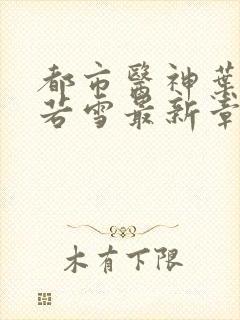 都市醫神葉
若雪最新章
木有下限